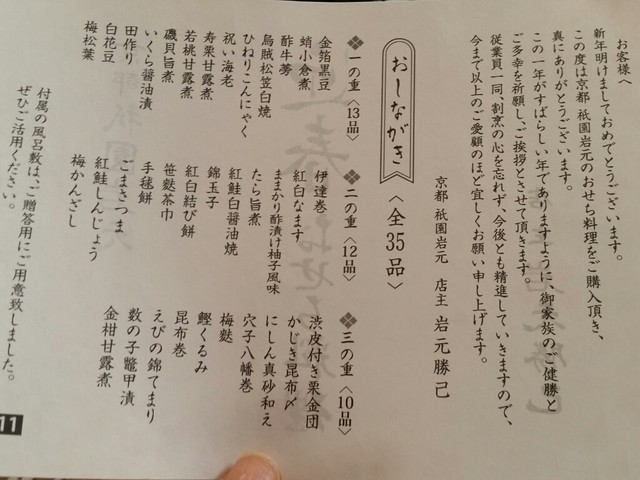 お客様へ
新年明けましておめでとうございます。
この度は京都 祇園岩元のおせち料理をご購入頂き、
真にありがとうございます。
この一年がすばらしい年でありますように、御家族のご健勝と
ご多幸を祈願し、ご挨拶とさせて頂きます。
従業員一同、割烹の心を忘れず、今後とも精進していきますので、
今まで以上のご愛顧のほど宜しくお願い申し上げます。
京都 祇園岩元 店主 岩元勝己
おしながき
〈全35品〉
一の重〈13品〉
金箔黒豆
蛸小倉煮
酢牛蒡
烏賊松笠白焼
ひねりこんにゃく
祝い海老
寿栗甘露煮
若桃甘露煮
磯貝旨煮
いくら醤油漬
田作り
白花豆
梅松葉
二の重〈12品〉
伊達巻
紅白なます
ままかり酢漬け柚子風味
たら旨煮
紅鮭白醤油焼
錦玉子
紅白結び餅
笹麩茶巾
手毬餅
ごまさつま
紅鮭しんじょう
梅かんざし
三の重〈10品〉
渋皮付き栗金団
かじき昆布〆
にしん真砂和え
穴子八幡巻
梅麩
鰹くるみ
昆布巻
えびの錦てまり
数の子鼈甲漬
金柑甘露煮
付属の風呂敷は、ご贈答用にご用意致しました。
ぜひご活用ください。
11